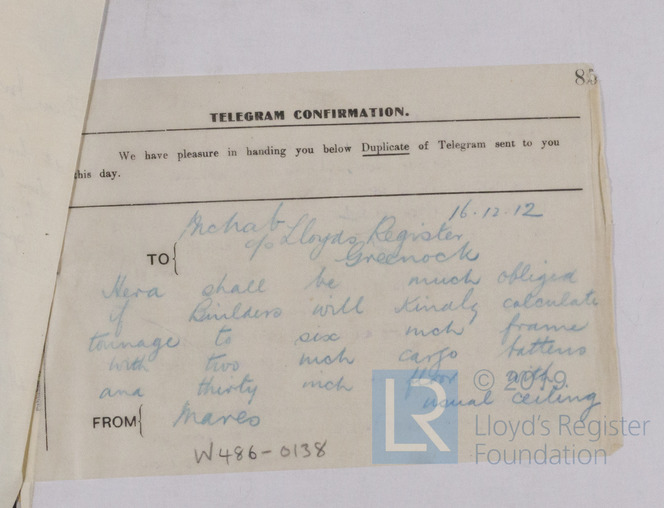 85
TELEGRAM CONFIRMATION.
We have pleasure in handing you below Duplicate of Telegram sent to you
this day.
16.12.12
c/o Lloyds Register
TO Greenock
Hera shall be much obliged
if Builders will Kindly calculate
tonnage to six inch frame
with two inch cargo battens
and thirty inch floor with
usual ceiling
FROM
W486-0138
© 2019
LR Lloyd's Register
Foundation